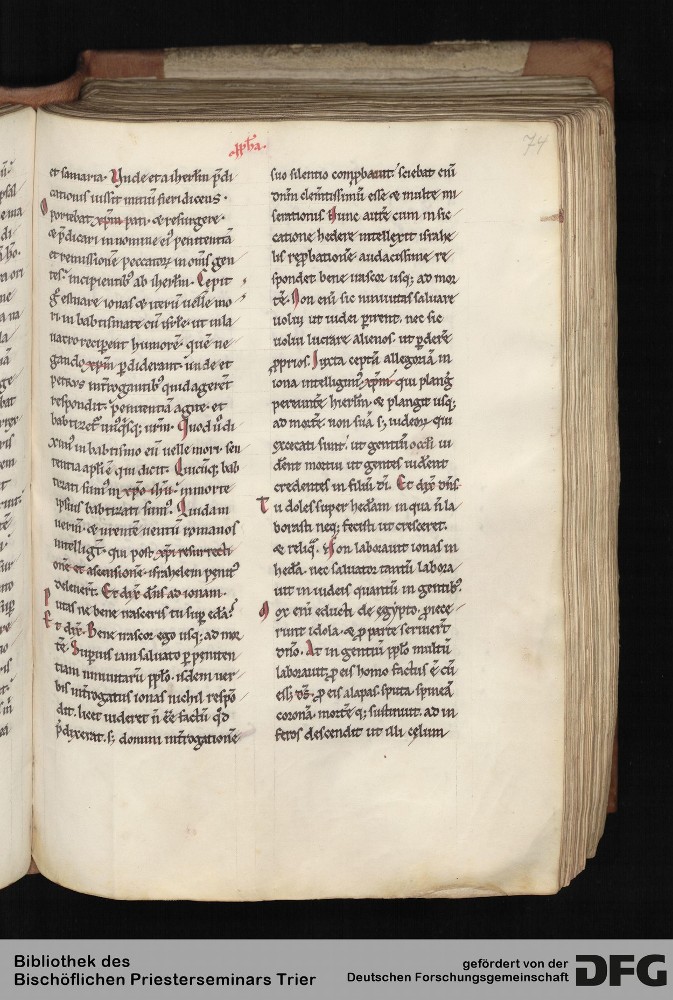 74
et samaria. Unde et a iherłm p̄di
cationis iussit initiū fieri dicens.
Oportebat xpm̄ pati. & resurgere.
& p̄dicari in nomine ei᷒ penitentiā
et remissionē peccatoꝝ in om̄s gen
tes. incipientib᷒ ab iherłm. Cepit
ḡ estuare ionas & iterū uelle mo
ri in babtismate cū isrłe. ut in la
uacro reciperent humorē. quē ne
gando xpm̄ p̄diderant. unde et
petrus int̄rogantib᷒ quid agerent
respondit. penitentiā agite. et
babtizet᷑ unusq̄sq; urm̄. Quod ū di
ximus in babtismo eū uelle mori. sen
tentia apłi ē qui dicit. Quicūq; bab
tizati sum᷒ in xp̄o ihū. in morte
ipsius babtizati sum᷒. Quidam
uermē. & urentē uentū romanos
intelligt̄. qui post xp̄i resurrecti
onē et ascensionē. israhelem penit᷒
deleuert̄. Et dix̄ dn̄s ad ionam.
Putas ne bene irasceris tu sup̱ edā?
Et dix̄. Bene irascor ego usq; ad mor
tē. Superius iam saluato p̱ peniten
tiam niniuitarū pp̄lo. isdem uer
bis int̄rogatus ionas nichil respō
dit. licet uideret n̄ ēē factū qd̄
p̄dixerat. s; domini int̄rogationē
suo silentio comp̱bauit. sciebat enī
dn̄m clem̄tissimū esse & multe mi
serationis. Nunc autē cum in sic
catione hedere intellexit israhe
lis rep̱bationē. audacissime re
spondet. bene irascor usq; ad mor
tē. Non enī sic niniuitas saluare
uolui. ut iudei p̱irent. nec sic
uolui lucrare alienos. ut p̱derē
p̱prios. Iuxta ceptā allegoriā in
ionā intelligim᷒ xpm̄. qui plangt̄
pereuntē hierłm. & plangit usq;
ad mortē. non suā s; iudeoꝝ. qui
excecati sunt. ut gentiū oculi ui
dent. mortui. ut gentes uident
credentes in filiū dī. Et dix̄ dn̄s.
Tu doles super hedam in qua n̄ la
borasti neq; fecisti ut cresceret.
& reliq̄. Non laborauit ionas in
hedā. nec saluator tantū labora
uit in iudeis quantū in gentib᷒.
Mox enī educti de egypto. p̱iece
runt idola. & p̱ parte seruiert̄
dn̄o. At in gentiū pp̄lo multū
laborauit. p̱ eis homo factus ē cū
eēt ds̄. p̱ eis alapas. sputa. spineā
coronā. mortē q; sustinuit. ad in
feros descendit ut illi cęlum
Bibliothek des
Bischöflichen Priesterseminars Trier
gefördert von der
Deutschen Forschungsgemeinschaft
DFG